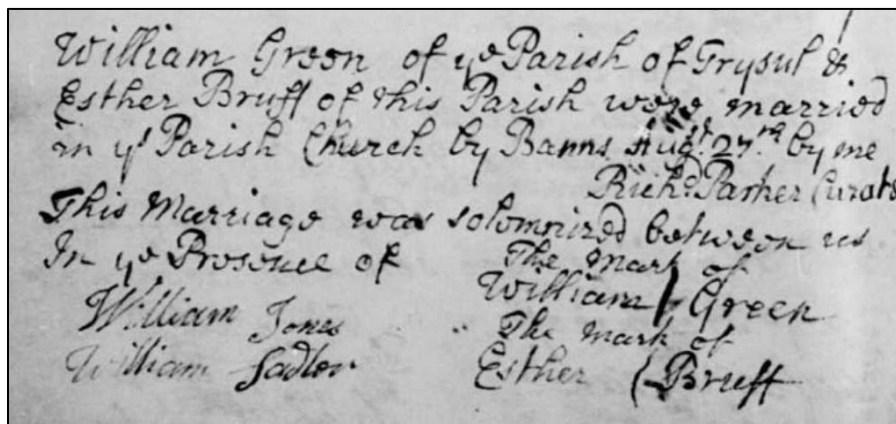 William Green of ye Parish of Trysul &
Esther Bruff of this Parish were married
in ye Parish Church by Banns Augst. 27th. by me
Richd. Parker Curate
This Marriage was solemnized between us
In ye Presence of The Mark of
William Green
William Jones The Mark of
William Sadler Esther Bruff